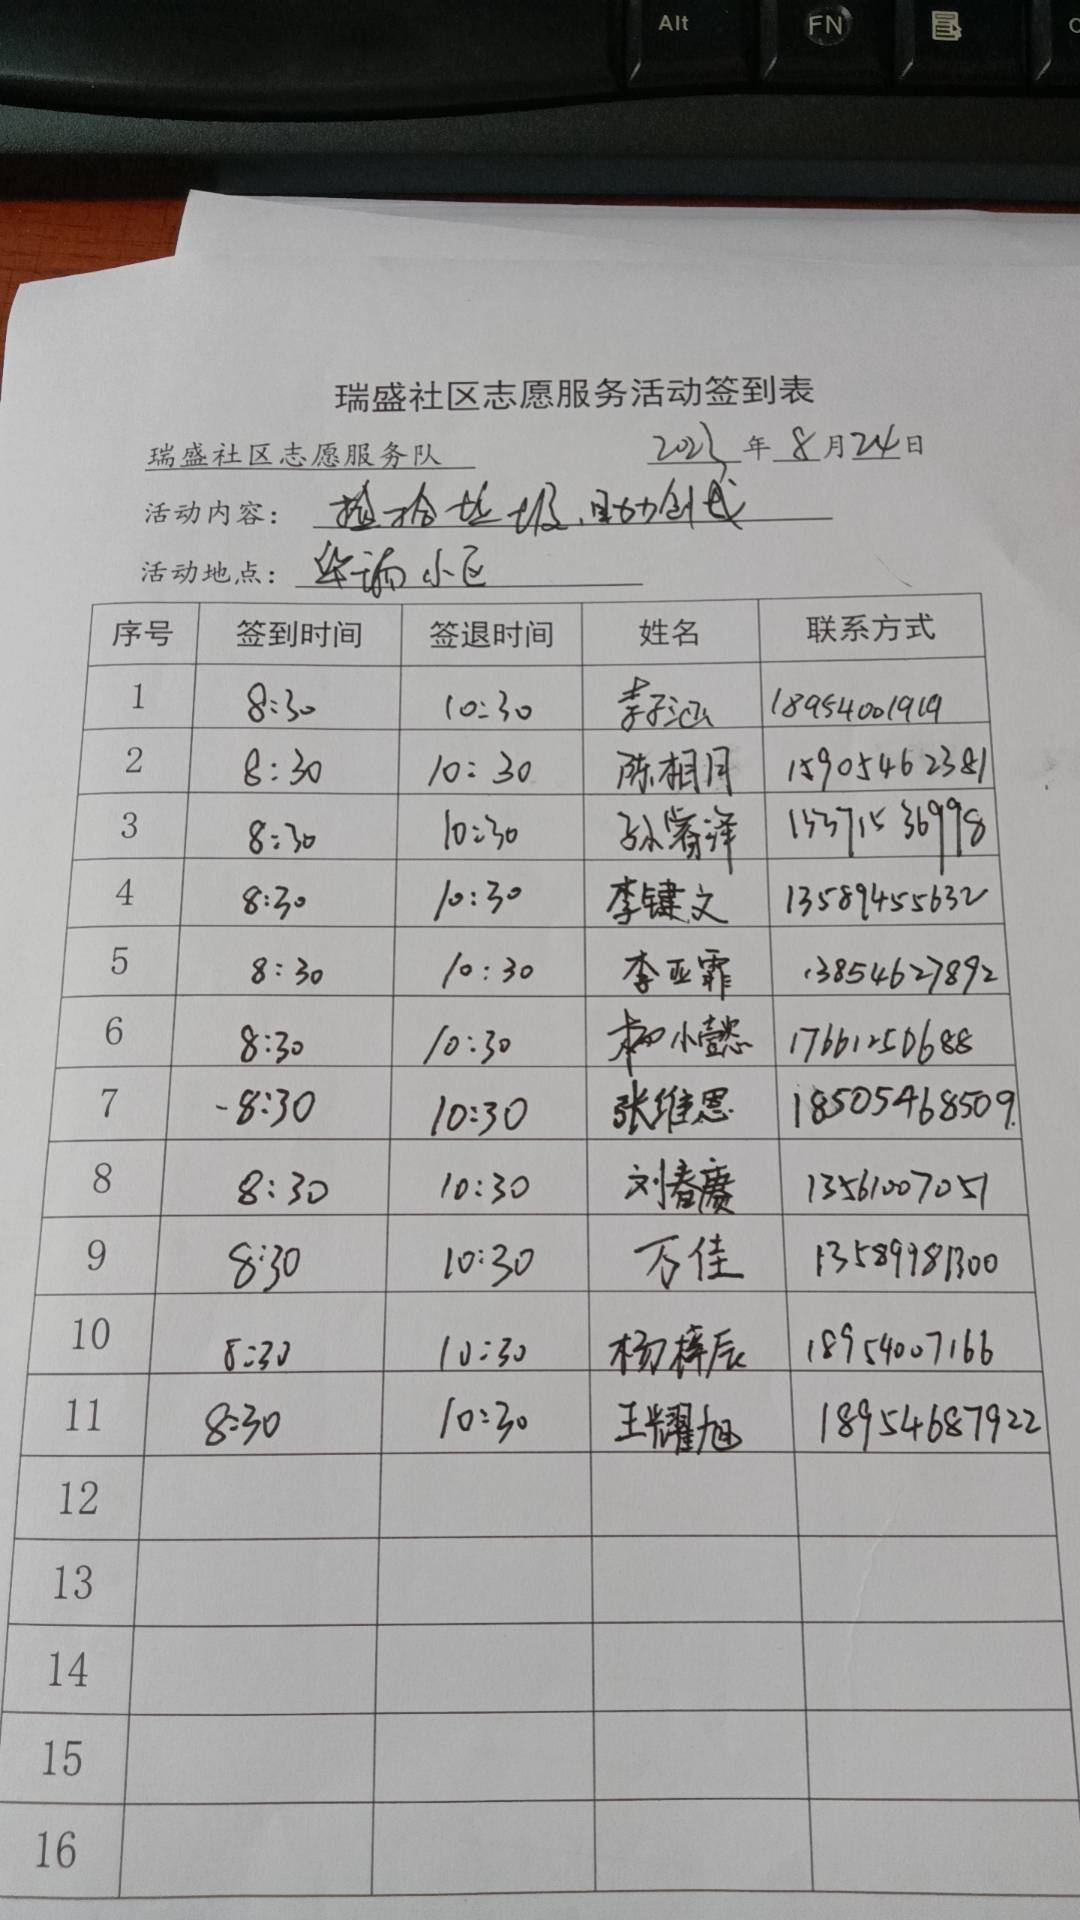 Alt FN
瑞盛社区志愿服务活动签到表
瑞盛社区志愿服务队 2023年8月24日
活动内容：捡拾垃圾,助力创城
活动地点：华瑞小区
序号 签到时间 签退时间 姓名 联系方式
1 8:30 10:30 李子涵 18954001919
2 8:30 10:30 陈相月 15905462381
3 8:30 10:30 孙睿泽 15371536998
4 8:30 10:30 李键文 13589455632
5 8:30 10:30 李亚霏 13854627892
6 8:30 10:30 柳小懿 17661250688
7 -8:30 10:30 张维恩 18505468509.
8 8:30 10:30 刘春赓 13561007051
9 8:30 10:30 万佳 13589981300
10 8:30 10:30 杨梓辰 18954007166
11 8:30 10:30 王耀旭 18954687922
12
13
14
15
16